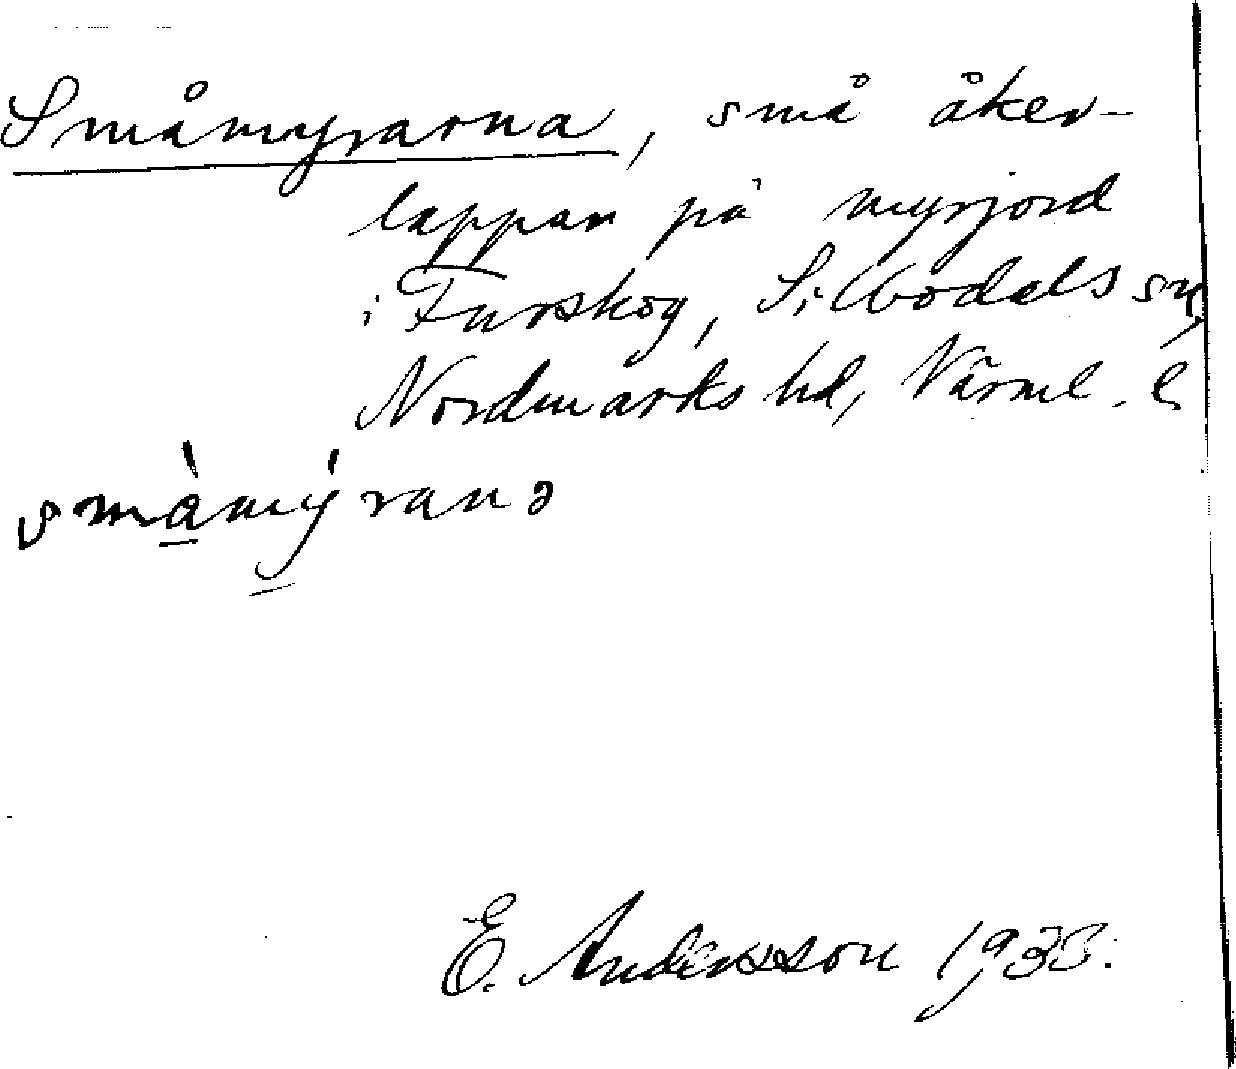 Småmyrarna, små åker-
lappar på myrjord
i Furskog, Silbodals sn,
Nordmarks hd, Värml. l
småmýranə
E. Andersson 1933.